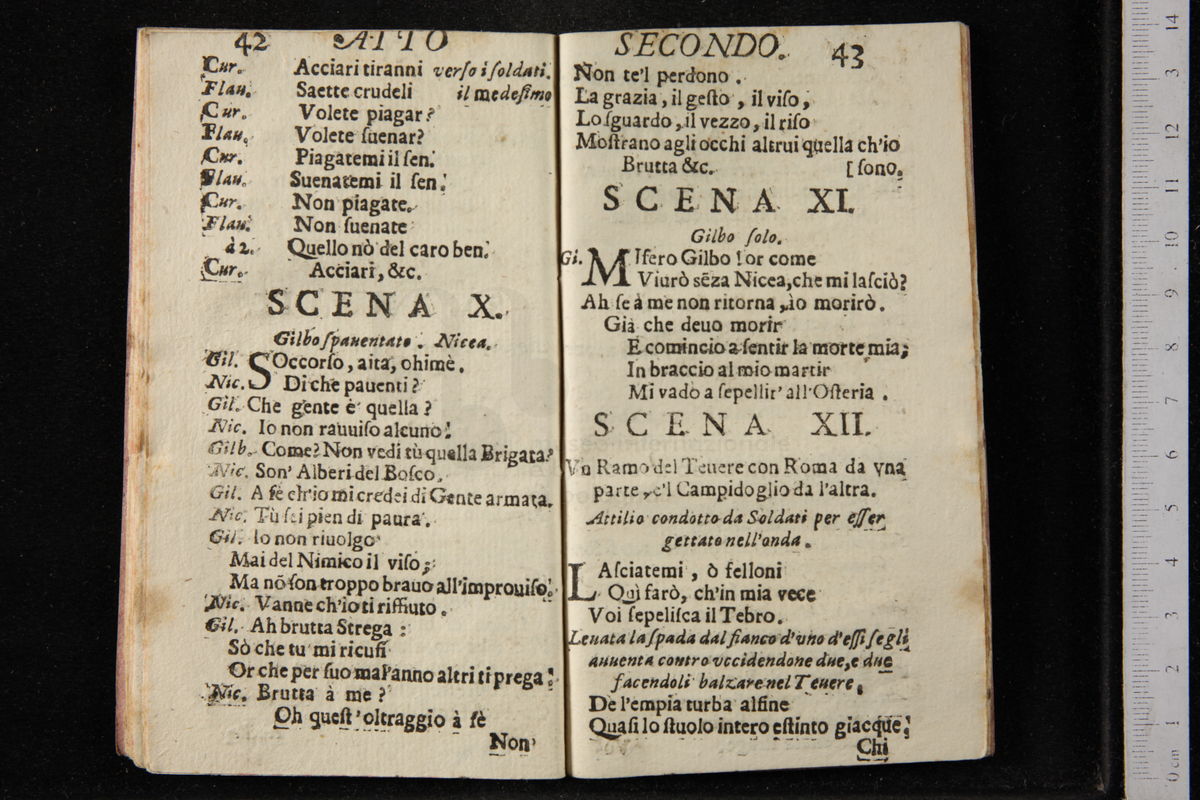 42 ATTO
Cur. Acciari tiranni verso i soldati.
Flau. Saette crudeli il medesimo
Cur. Volete piagar?
Flau. Volete suenar?
Cur. Piagatemi il sen.
Flau. Suenatemi il sen.
Cur. Non piagate.
Flau. Non suenate
à 2. Quello nò del caro ben.
Cur. Acciari, &c.
SCENA X.
Gilbo spauentato. Nicea.
Gil. SOccorso, aita, ohimè.
Nic. Di che pauenti?
Gil. Che gente è quella?
Nic. Io non rauuiso alcuno!
Gilb. Come? Non vedi tù quella Brigata?
Nic. Son' Alberi del Bosco.
Gil. A fè ch'io mi credei di Gente armata.
Nic. Tù sei pien di paura.
Gil. Io non riuolgo
Mai del Nimico il viso;
Ma nõ son troppo brauo all'improuiso.
Nic. Vanne ch'io ti riffiuto.
Gil. Ah brutta Strega:
Sò che tu mi ricusi
Or che per suo mal'anno altri ti prega!
Nic. Brutta à me?
Oh quest'oltraggio à fè
Non
SECONDO. 43
Non te'l perdono.
La grazia, il gesto, il viso,
Lo sguardo, il vezzo, il riso
Mostrano agli occhi altrui quella ch'io
Brutta &c. [sono.
SCENA XI.
Gilbo solo.
Gi. MIsero Gilbo! or come
Viurò sẽza Nicea, che mi lasciò?
Ah se à me non ritorna, io morirò.
Già che deuo morir
E comincio a sentir la morte mia;
In braccio al mio martir
Mi vado a sepellir' all'Osteria.
SCENA XII.
Vn Ramo del Teuere con Roma da vna
parte, e'l Campidoglio da l'altra.
Attilio condotto da Soldati per esser
gettato nell'onda.
LAsciatemi, ò felloni
Quì farò, ch'in mia vece
Voi sepelisca il Tebro.
Leuata la spada dal fianco d'vno d'essi segli
auuenta contro vccidendone due, e due
facendoli balzare nel Teuere.
De l'empia turba alfine
Quasi lo stuolo intero estinto giacque!
Chi
0 cm 1 2 3 4 5 6 7 8 9 10 11 12 13 14